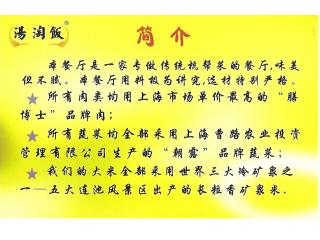 湯淘飯®
简介
本餐厅是一家专做传统杭帮菜的餐厅,味美
但不腻。本餐厅用料极为讲究,选材特别严格。
★ 所有肉类均用上海市场单价最高的“膳
博士”品牌肉;
★ 所有蔬菜均全部采用上海曹路农业投资
管理有限公司生产的“朝露”品牌蔬菜;
★ 我们的大米全部采用世界三大冷矿泉之
一—五大连池风景区出产的长粒香矿泉米.